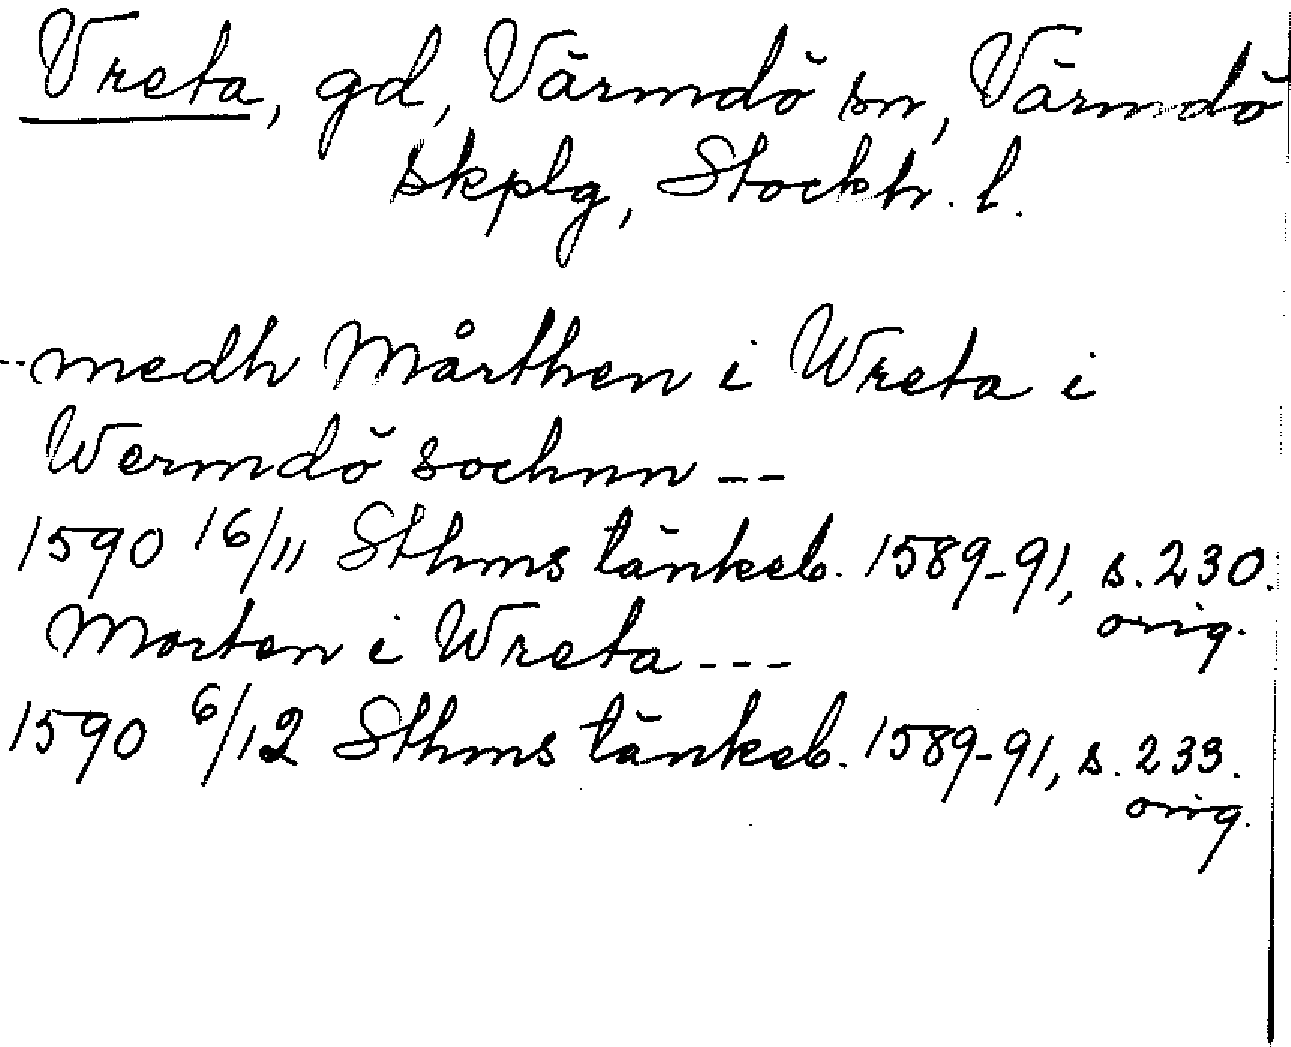 Vreta, gd, Värmdö sn, Värmdö
skplg, Stockh. l.
--medh Mårthen i Wreta i
Wermdö sochnn --
1590 16/11 Sthms tänkeb. 1589-91, s. 230.
orig.
Morten i Wreta ---
1590 6/12 Sthms tänkeb. 1589-91, s. 233.
orig.